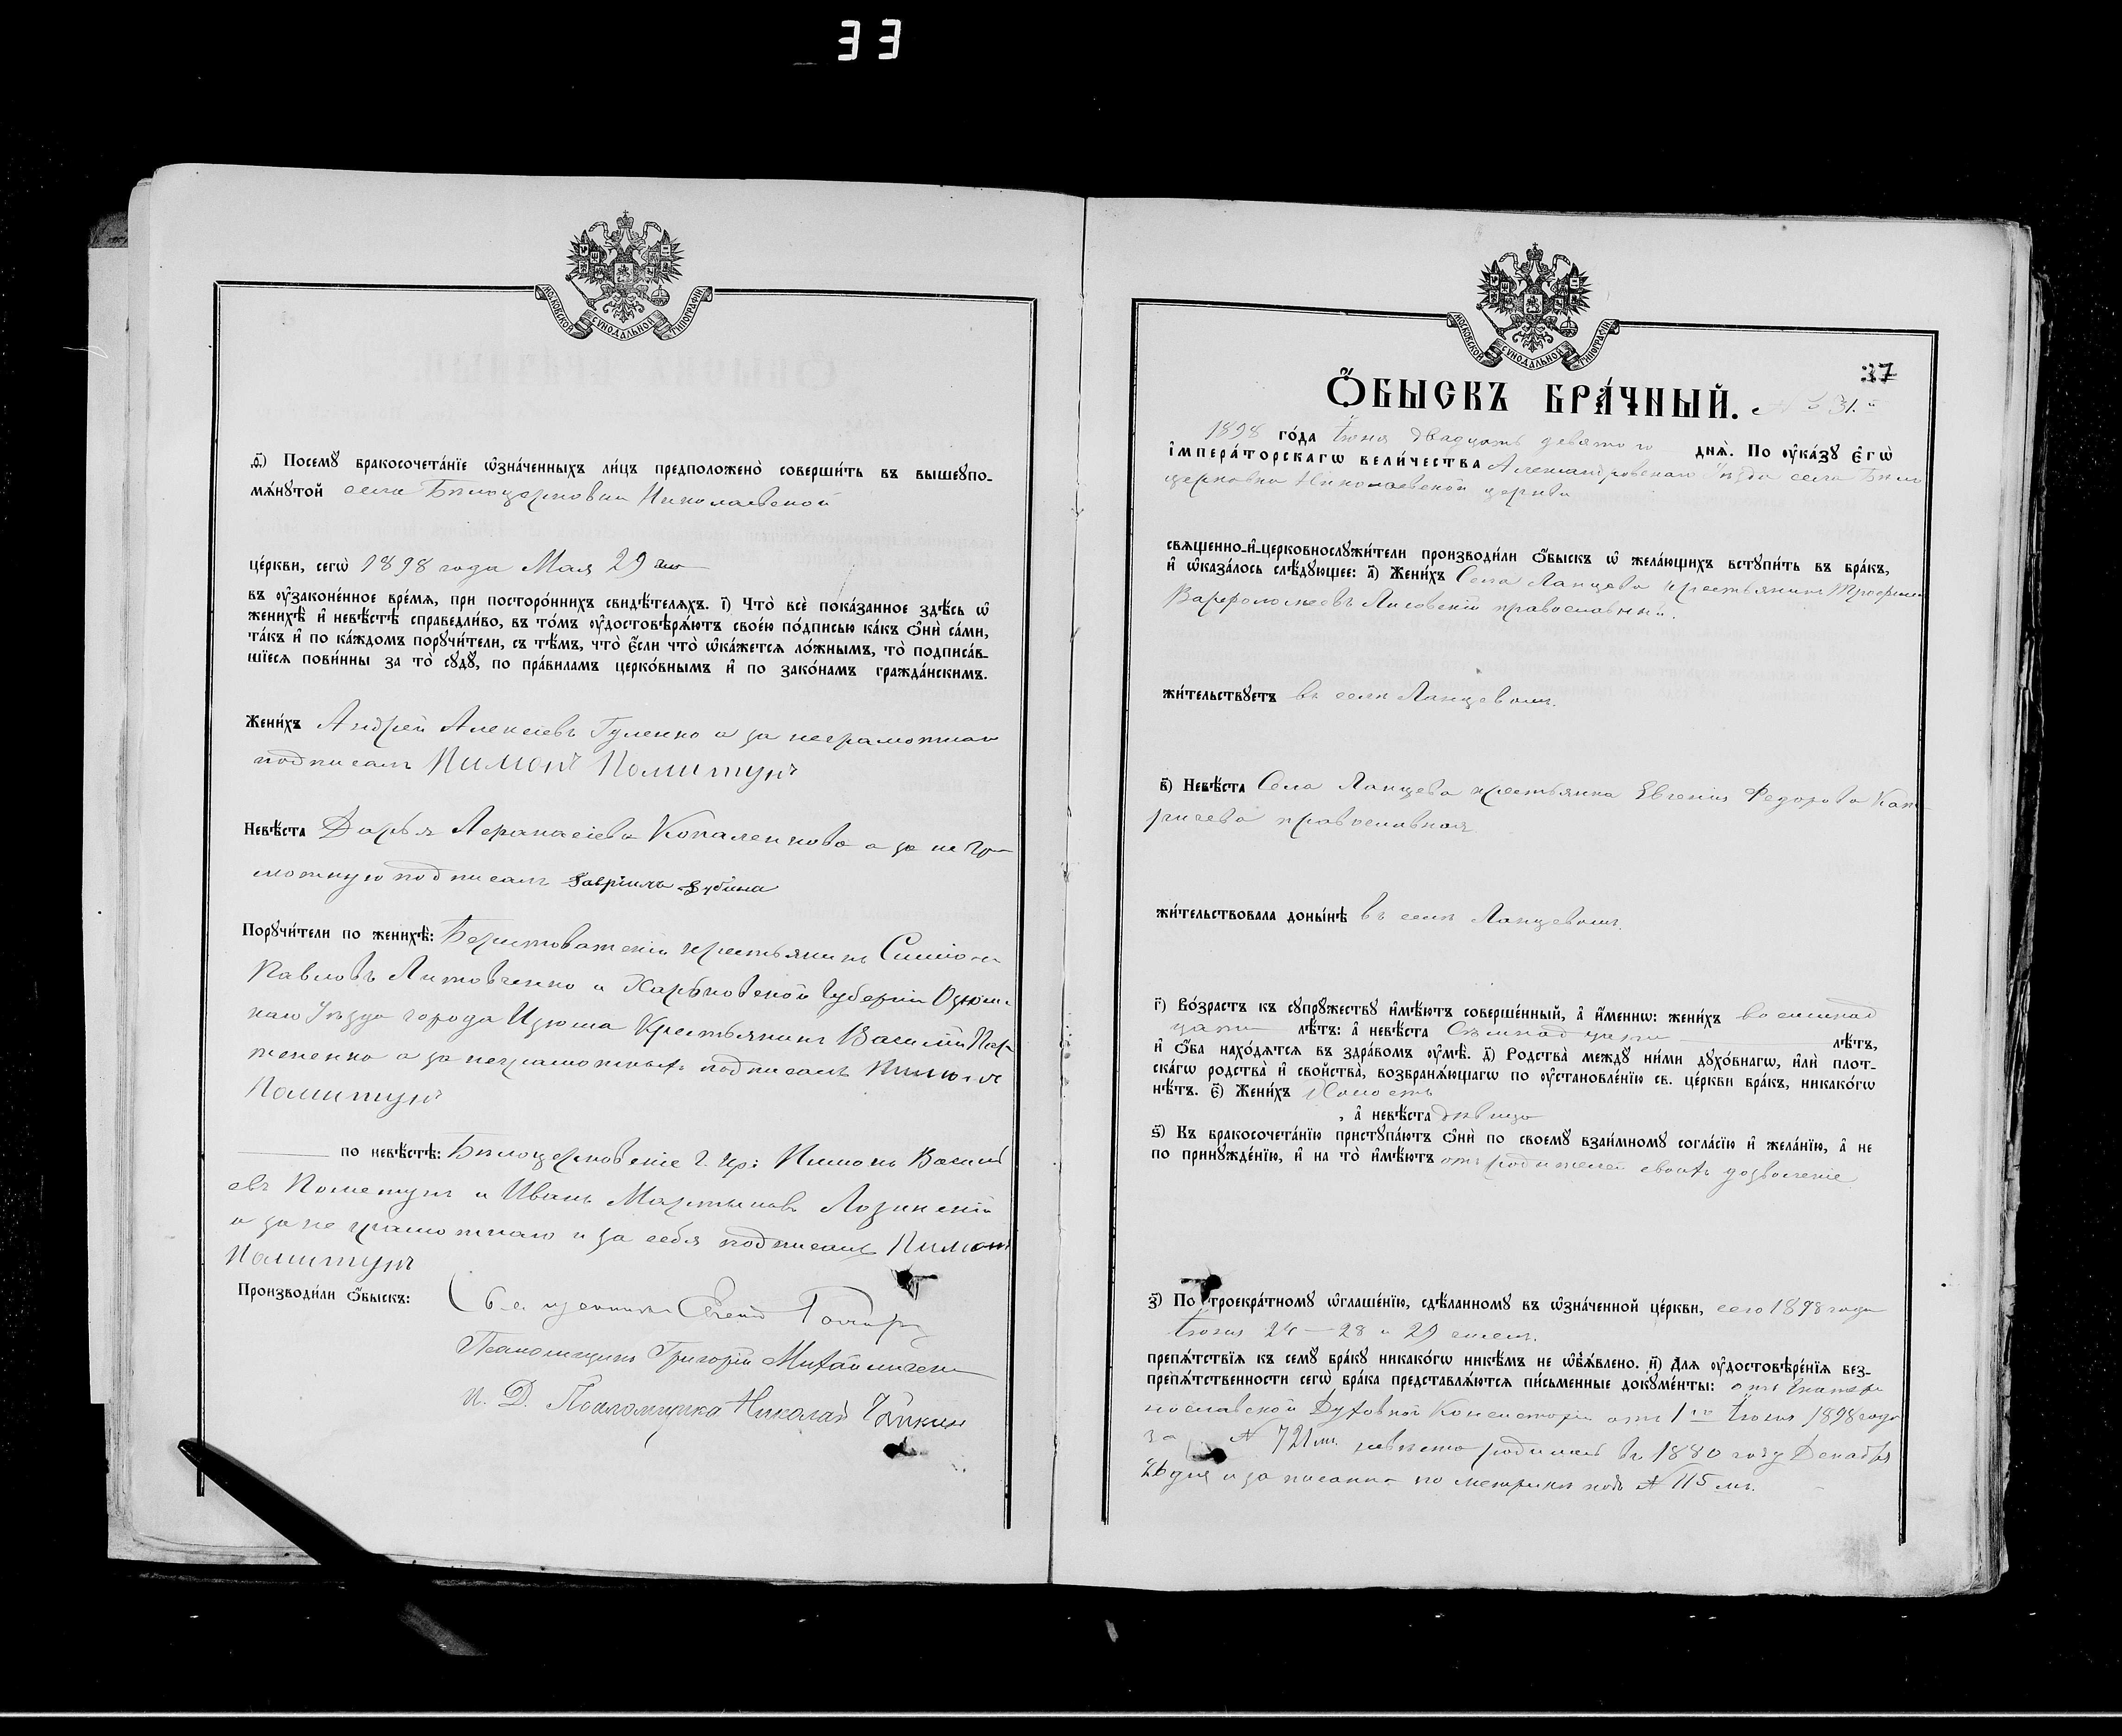 33
МОСКОВСКОЙ СѴНОДАЛЬНОЙ ТИПОГРАФІИ
д҃) Посемꙋ̀ бракосочета́нїе ѡ҆зна́ченныхъ ли́цъ предположено̀ соверши́ть въ вышеупо-
мѧ́нꙋтой села Бѣлоцерковки Николаевской
це́ркви, сегѡ̀ 1898 года Мая 29 дня
въ ᲂу҆законе́нное вре́мѧ, при посторо́ннихъ свидѣ́телѧхъ. і҃) Что̀ всѐ пока́занное здѣ́сь ѡ҆
женихѣ̀ и҆ невѣ́стѣ справедли́во, въ то́мъ ᲂу҆достовѣрѧ́ютъ свое́ю по́дписью ка́къ ѻ҆нѝ са́ми,
та́къ и҆ по ка́ждомъ порꙋчи́тели, съ тѣ́мъ, что̀ є҆́сли что̀ ѡ҆ка́жетсѧ ло́жнымъ, то̀ подписа́в-
шїесѧ пови́нны за то̀ сꙋдꙋ̀, по пра́виламъ церко́внымъ и҆ по зако́намъ гражда́нскимъ.
Жени́хъ Андрей Алексѣевъ Гуленко а за неграмотнаго
подписалъ Пимонъ Помитунъ
Невѣ́ста Дарья Афанасіева Коваленкова а за не гра
мотную подписалъ Гавріилъ Дубина
Порꙋчи́тели по женихѣ̀: Берестоватскій крестьянинъ Симіонъ
Павловъ Литовченко и Харьковской Губерніи Изюмс
каго Уѣзда города Изюма Крестьянинъ Василій
а за неграмотныхъ подписалъ Пимонъ
Помитунъ
по невѣ́стѣ: Бѣлоцерковскіе Г. кр: Пимонъ Васильевъ
евъ Пометунъ и Иванъ Мартыновъ Лозинскій
а за не грамотнаго и за себя подписалъ Пимонъ
Помитунъ
Производи́ли ѻ҆́быскъ: Священникъ
Псаломщикъ Григорій Михайличенко
и. Д. Псаломщика Николай Чайкин
МОСКОВСКОЙ СѴНОДАЛЬНОЙ ТИПОГРАФІИ
37
Ѻ҆́БЫСКЪ БРА́ЧНЫЙ. № 31.й
1898 го́да Іюня двадцать девятого днѧ̀. По ᲂу҆ка́зꙋ Є҆гѡ̀
і҆мпера́торскагѡ вели́чества Александровскаго Уѣзда села Бѣло
церковки Николаевской церкви
свѧщенно-и҆-церковнослꙋжи́тели производи́ли ѻ҆́быскъ ѡ҆ жела́ющихъ встꙋпи́ть въ бра́къ,
и҆ ѡ҆каза́лось слѣ́дꙋющее: а҃) Жени́хъ Села Ланцева крестьянинъ Трофимъ
Варфоломеевъ Лисовскій православный.
жи́тельствꙋетъ въ селѣ Ланцевомъ.
в҃) Невѣ́ста Села Ланцева крестьянка Евгенія Федорова
православная
жи́тельствовала доны́нѣ въ селѣ Ланцевомъ.
г҃) Во́зрастъ къ сꙋпрꙋ́жествꙋ и҆мѣ́ютъ соверше́нный, а҆ и҆́менно: жени́хъ восемнад
цати лѣ́тъ: а҆ невѣ́ста Семнадцати лѣ́тъ,
и҆ ѻ҆́ба нахо́дѧтсѧ въ здра́вомъ ᲂу҆мѣ̀. д҃) Родства̀ междꙋ ни́ми дꙋхо́внагѡ, и҆лѝ плот-
ска́гѡ родства̀ и҆ сво́йства, возбранѧ́ющагѡ по ᲂу҆становле́нїю св. це́ркви бра́къ, никако́гѡ
нѣ́тъ. є҃) Жени́хъ Холостъ
, а҆ невѣ́ста дѣвица
ѕ҃) Къ бракосочета́нїю пристꙋпа́ютъ ѻ҆нѝ по своемꙋ̀ взаи́мномꙋ согла́сїю и҆ жела́нїю, а҆ не
по принꙋжде́нїю, и҆ на то̀ и҆мѣ́ютъ отъ родителей своихъ дозволеніе
з҃) По троекра́тномꙋ ѡ҆глаше́нїю, сдѣ́ланномꙋ въ ѡ҆зна́ченной це́ркви, сего 1898 года
Іюня 24 — 28 и 29 чиселъ.
препѧ́тствїѧ къ семꙋ̀ бра́кꙋ никако́гѡ никѣ́мъ не ѡ҆б̾ѧ́влено. и҃) Длѧ ᲂу҆достовѣре́нїѧ без-
препѧ́тственности сегѡ̀ бра́ка представлѧ́ютсѧ пи́сьменные докꙋме́нты: отъ Екатери
нославской Духовной Консисторіи отъ 1 го Іюня 1898 года
за № 721 мъ. невѣста родилась въ 1880 году Декабря
26 дня и записана по метрикѣ подъ № 115 мъ.